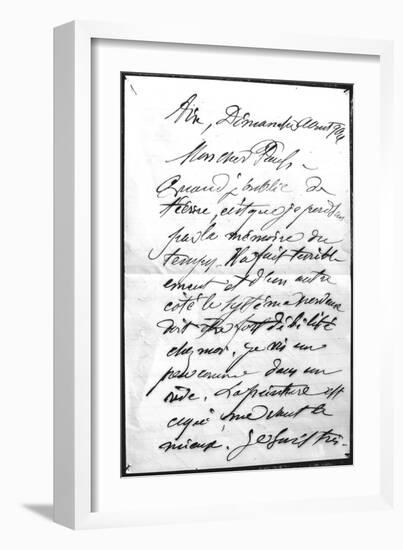 Aix, Dimanche Aout
Mon cher Paul,
Quand j'oublie de
t'écrire, c'est que je perds un
peu la mémoire du
temps. Il a fait terrible
ement et d'un autre
coté le système nerveux
doit être fort débilité
chez moi. je vis un
peu comme dans un
vide. La peinture est
ce qui me vaut le
mieux. Je suis très